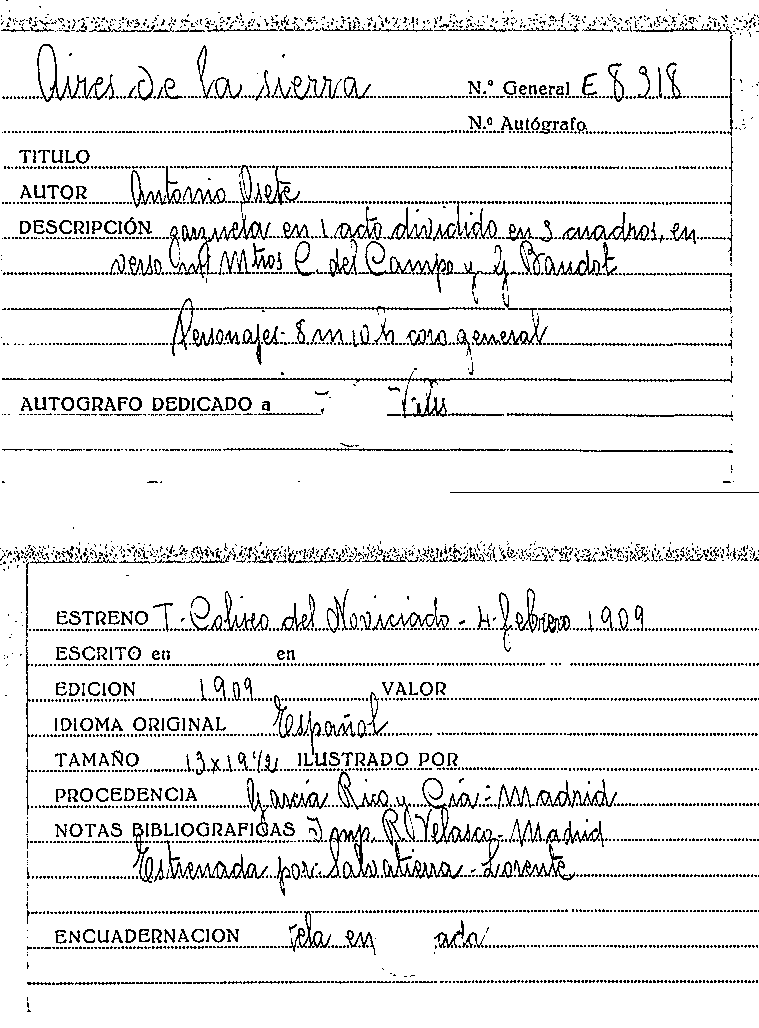 Aires de la sierra N.º General E 8318
N.º Autógrafo
TITULO
AUTOR Antonio Osete
DESCRIPCIÓN zarzuela en 1 acto dividido en 3 cuadros, en
verso Mtros C. del Campo y G. Baudot
Personajes- 8 m 10 h coro general
AUTOGRAFO DEDICADO a
ESTRENO T. Coliseo del Noviciado - 4 febrero 1909
ESCRITO en en
EDICION 1909 VALOR
IDIOMA ORIGINAL Español
TAMAÑO 13 x 19 1/2 ILUSTRADO POR
PROCEDENCIA García Rico y Cía - Madrid
NOTAS BIBLIOGRAFICAS Imp. R Velasco - Madrid
Estrenada por: Salvatierra - Lorente
ENCUADERNACION tela en